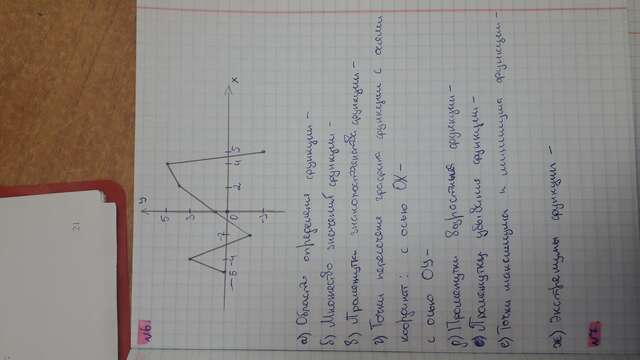 №6.
y
5
3
-5 -4 -2 0 2 4 5 x
-3
а) Область определения функции -
б) Множество значений функции -
в) Промежутки знакопостоянства функции -
г) Точки пересечения графика функции с осями
координат: с осью OX -
с осью ОУ -
д) Промежутки возрастания функции -
е) Промежутки убывания функции -
е) Точки максимума и минимума функции -
ж) Экстремумы функции -
№7.
21